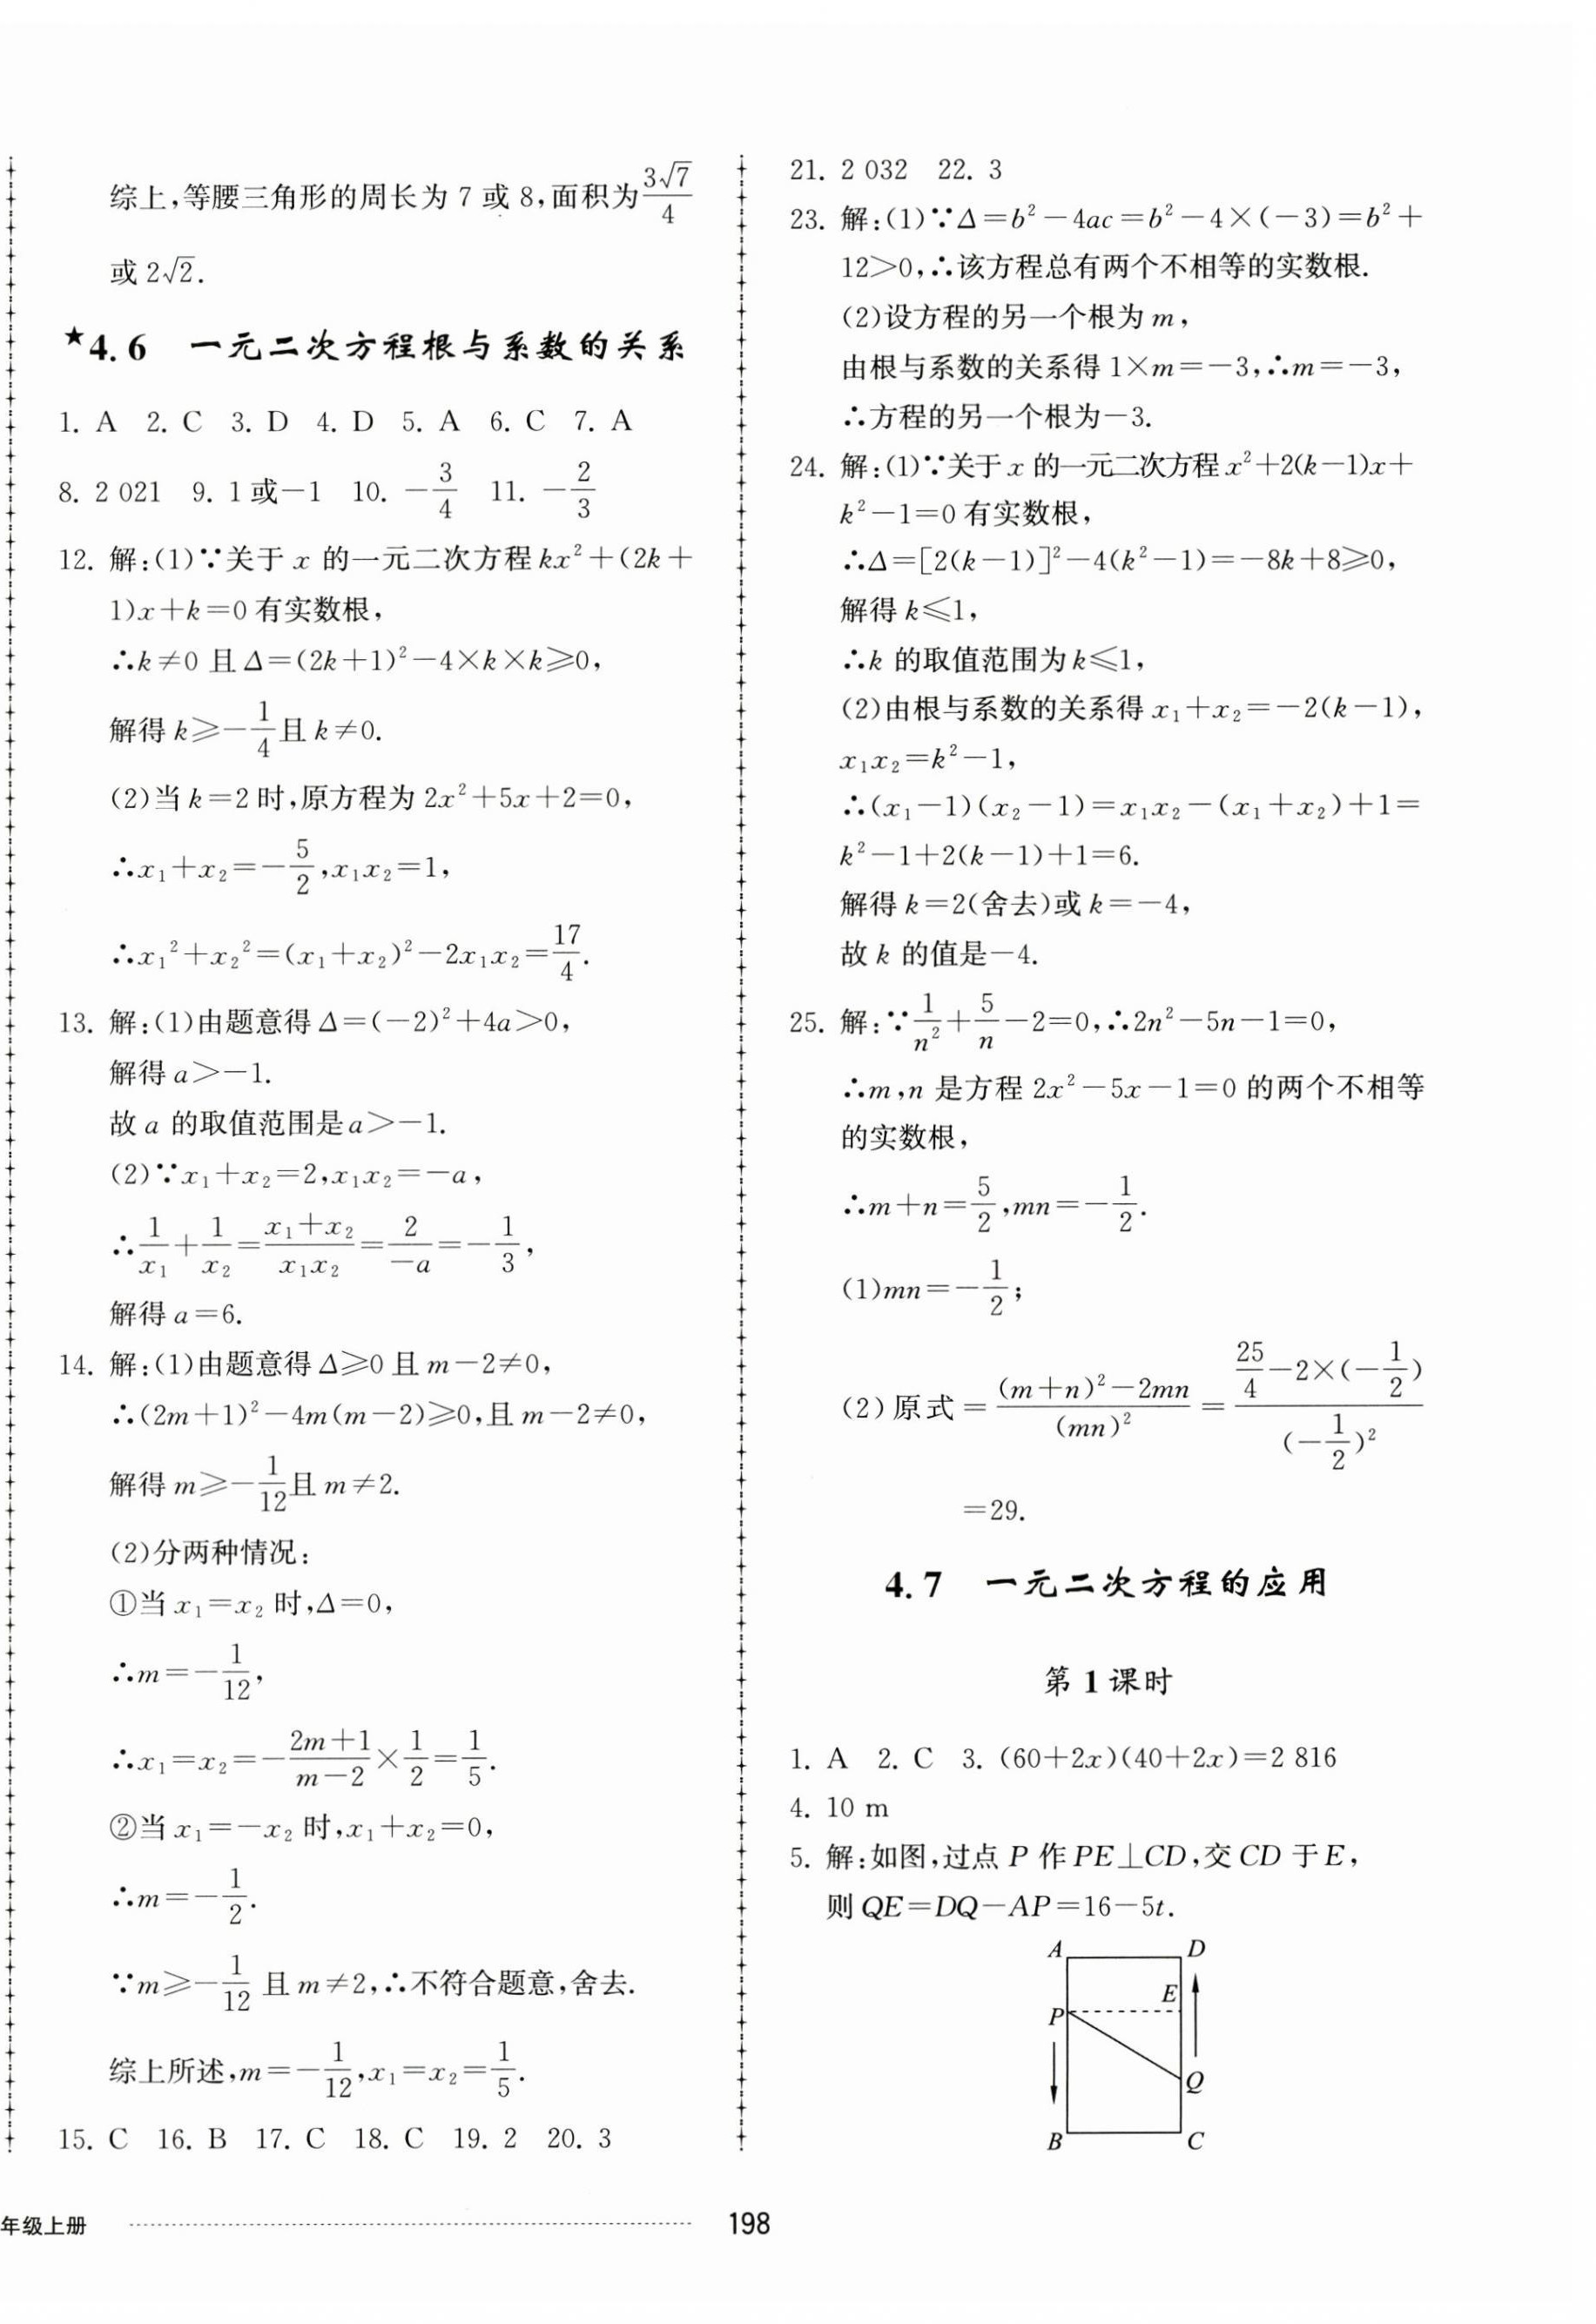 综上,等腰三角形的周长为 7 或 8,面积为$\frac{3\sqrt{7}}{4}$
或 2√2.
★4.6 一元二次方程根与系数的关系
1. A 2. C 3. D 4. D 5. A 6. C 7. A
8. 2 021 9. 1 或-1 10. $-\frac{3}{4}$ 11. $-\frac{2}{3}$
12. 解:(1)∵关于 x 的一元二次方程 kx²+(2k+
1)x+k=0 有实数根,
∴k≠0 且 Δ=(2k+1)²-4×k×k≥0,
解得 k≥$-\frac{1}{4}$且 k≠0.
(2)当 k=2 时,原方程为 2x²+5x+2=0,
∴x₁+x₂=$-\frac{5}{2}$,x₁x₂=1,
∴x₁²+x₂²=(x₁+x₂)²-2x₁x₂=$\frac{17}{4}$.
13. 解:(1)由题意得 Δ=(-2)²+4a>0,
解得 a>-1.
故 a 的取值范围是 a>-1.
(2)∵x₁+x₂=2,x₁x₂=-a,
∴$\frac{1}{x_1}+\frac{1}{x_2}=\frac{x_1+x_2}{x_1x_2}=\frac{2}{-a}=-\frac{1}{3}$,
解得 a=6.
14. 解:(1)由题意得 Δ≥0 且 m-2≠0,
∴(2m+1)²-4m(m-2)≥0,且 m-2≠0,
解得 m≥$-\frac{1}{12}$且 m≠2.
(2)分两种情况:
①当 x₁=x₂ 时,Δ=0,
∴m=$-\frac{1}{12}$,
∴x₁=x₂=$-\frac{2m+1}{m-2}\times\frac{1}{2}=\frac{1}{5}$.
②当 x₁=-x₂ 时,x₁+x₂=0,
∴m=$-\frac{1}{2}$.
∵m≥$-\frac{1}{12}$ 且 m≠2,∴不符合题意,舍去.
综上所述,m=$-\frac{1}{12}$,x₁=x₂=$\frac{1}{5}$.
15. C 16. B 17. C 18. C 19. 2 20. 3
21. 2 032 22. 3
23. 解:(1)∵Δ=b²-4ac=b²-4×(-3)=b²+
12>0,∴该方程总有两个不相等的实数根.
(2)设方程的另一个根为 m,
由根与系数的关系得 1×m=-3,∴m=-3,
∴方程的另一个根为-3.
24. 解:(1)∵关于 x 的一元二次方程 x²+2(k-1)x+
k²-1=0 有实数根,
∴Δ=[2(k-1)]²-4(k²-1)=-8k+8≥0,
解得 k≤1,
∴k 的取值范围为 k≤1,
(2)由根与系数的关系得 x₁+x₂=-2(k-1),
x₁x₂=k²-1,
∴(x₁-1)(x₂-1)=x₁x₂-(x₁+x₂)+1=
k²-1+2(k-1)+1=6.
解得 k=2(舍去)或 k=-4,
故 k 的值是-4.
25. 解:∵$\frac{1}{n^2}+\frac{5}{n}$-2=0,∴2n²-5n-1=0,
∴m,n 是方程 2x²-5x-1=0 的两个不相等
的实数根,
∴m+n=$\frac{5}{2}$,mn=$-\frac{1}{2}$.
(1)mn=$-\frac{1}{2}$;
(2)原式=$\frac{(m+n)^2-2mn}{(mn)^2}=\frac{\frac{25}{4}-2\times(-\frac{1}{2})}{(-\frac{1}{2})^2}$
=29.
4.7 一元二次方程的应用
第 1 课时
1. A 2. C 3. (60+2x)(40+2x)=2 816
4. 10 m
5. 解:如图,过点 P 作 PE⊥CD,交 CD 于 E,
则 QE=DQ-AP=16-5t.
A D
E
P
Q
B C
年级上册 198